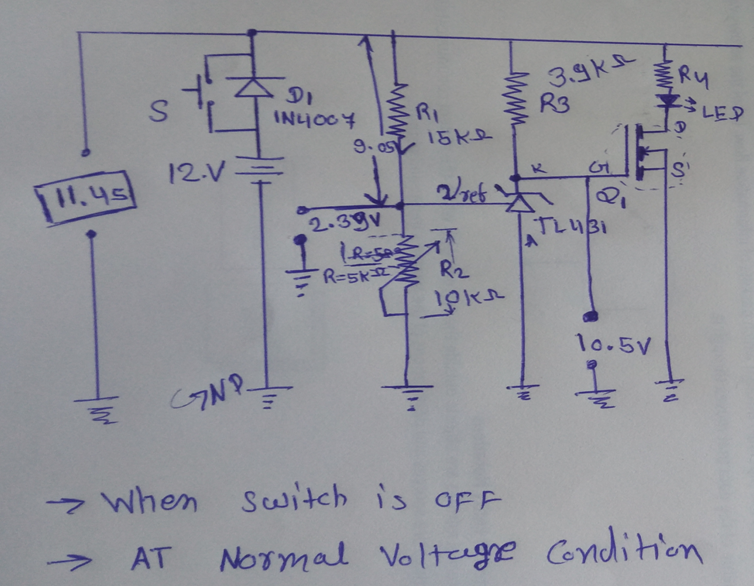 3.9KΩ
R4
LED
S
D1
1N4007
R1
15KΩ
9.05
R3
D
12.V
11.45
K
G
S
Q1
Vref
2.39V
TL431
A
R=5KΩ
R2
10KΩ
10.5V
GND
→ When switch is OFF
→ AT Normal Voltage Condition